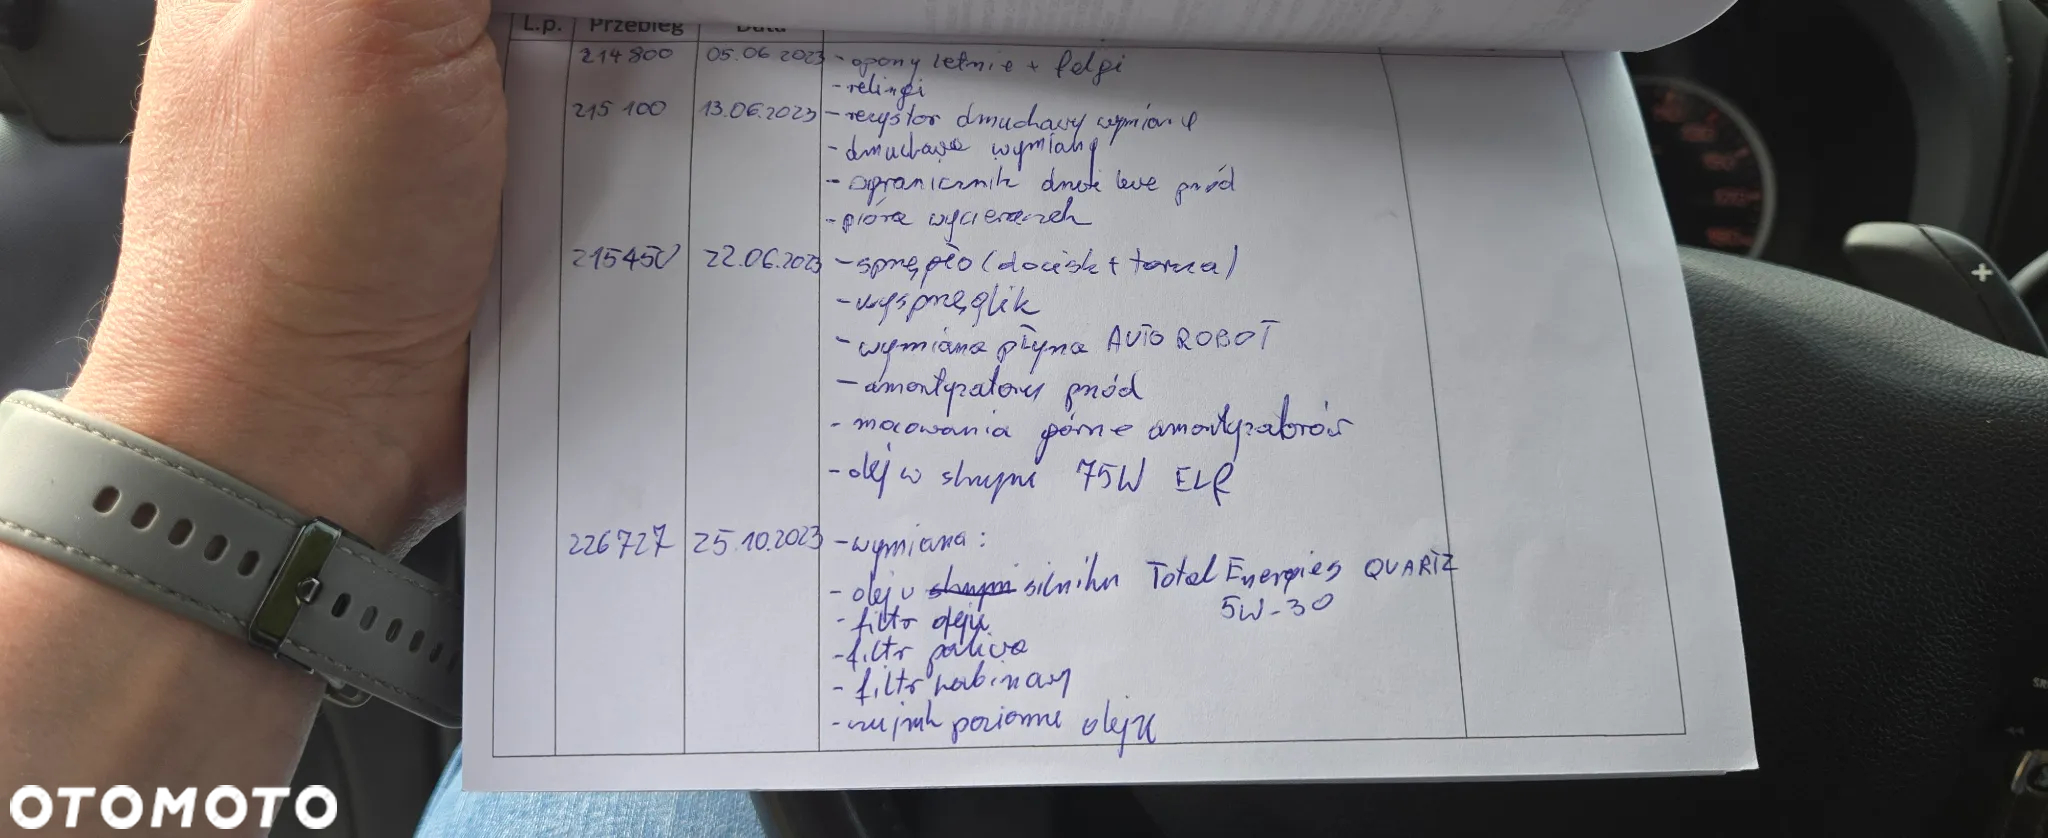 L.p. Przebieg Data
214 800 05.06.2023 - opony letnie + felgi
- relingi
215 100 13.06.2023 - rezystor dmuchawy wymiana
- dmuchawa wymiany
- ogranicznik drzwi lewe przód
- pióra wycieraczek
215450 22.06.2023 - sprzęgło (docisk + tarcza)
- wysprzęglik
- wymiana płynu AUTO ROBOT
- amortyzatory przód
- mocowania górne amortyzatorów
- olej w skrzyni 75W
226727 25.10.2023 - wymiana:
- olej w skrzyni silniku Total Energies QUARTZ
5W-30
- filtr oleju
- filtr paliwa
- filtr kabinowy
- czujnik poziomu oleju
OTOMOTO